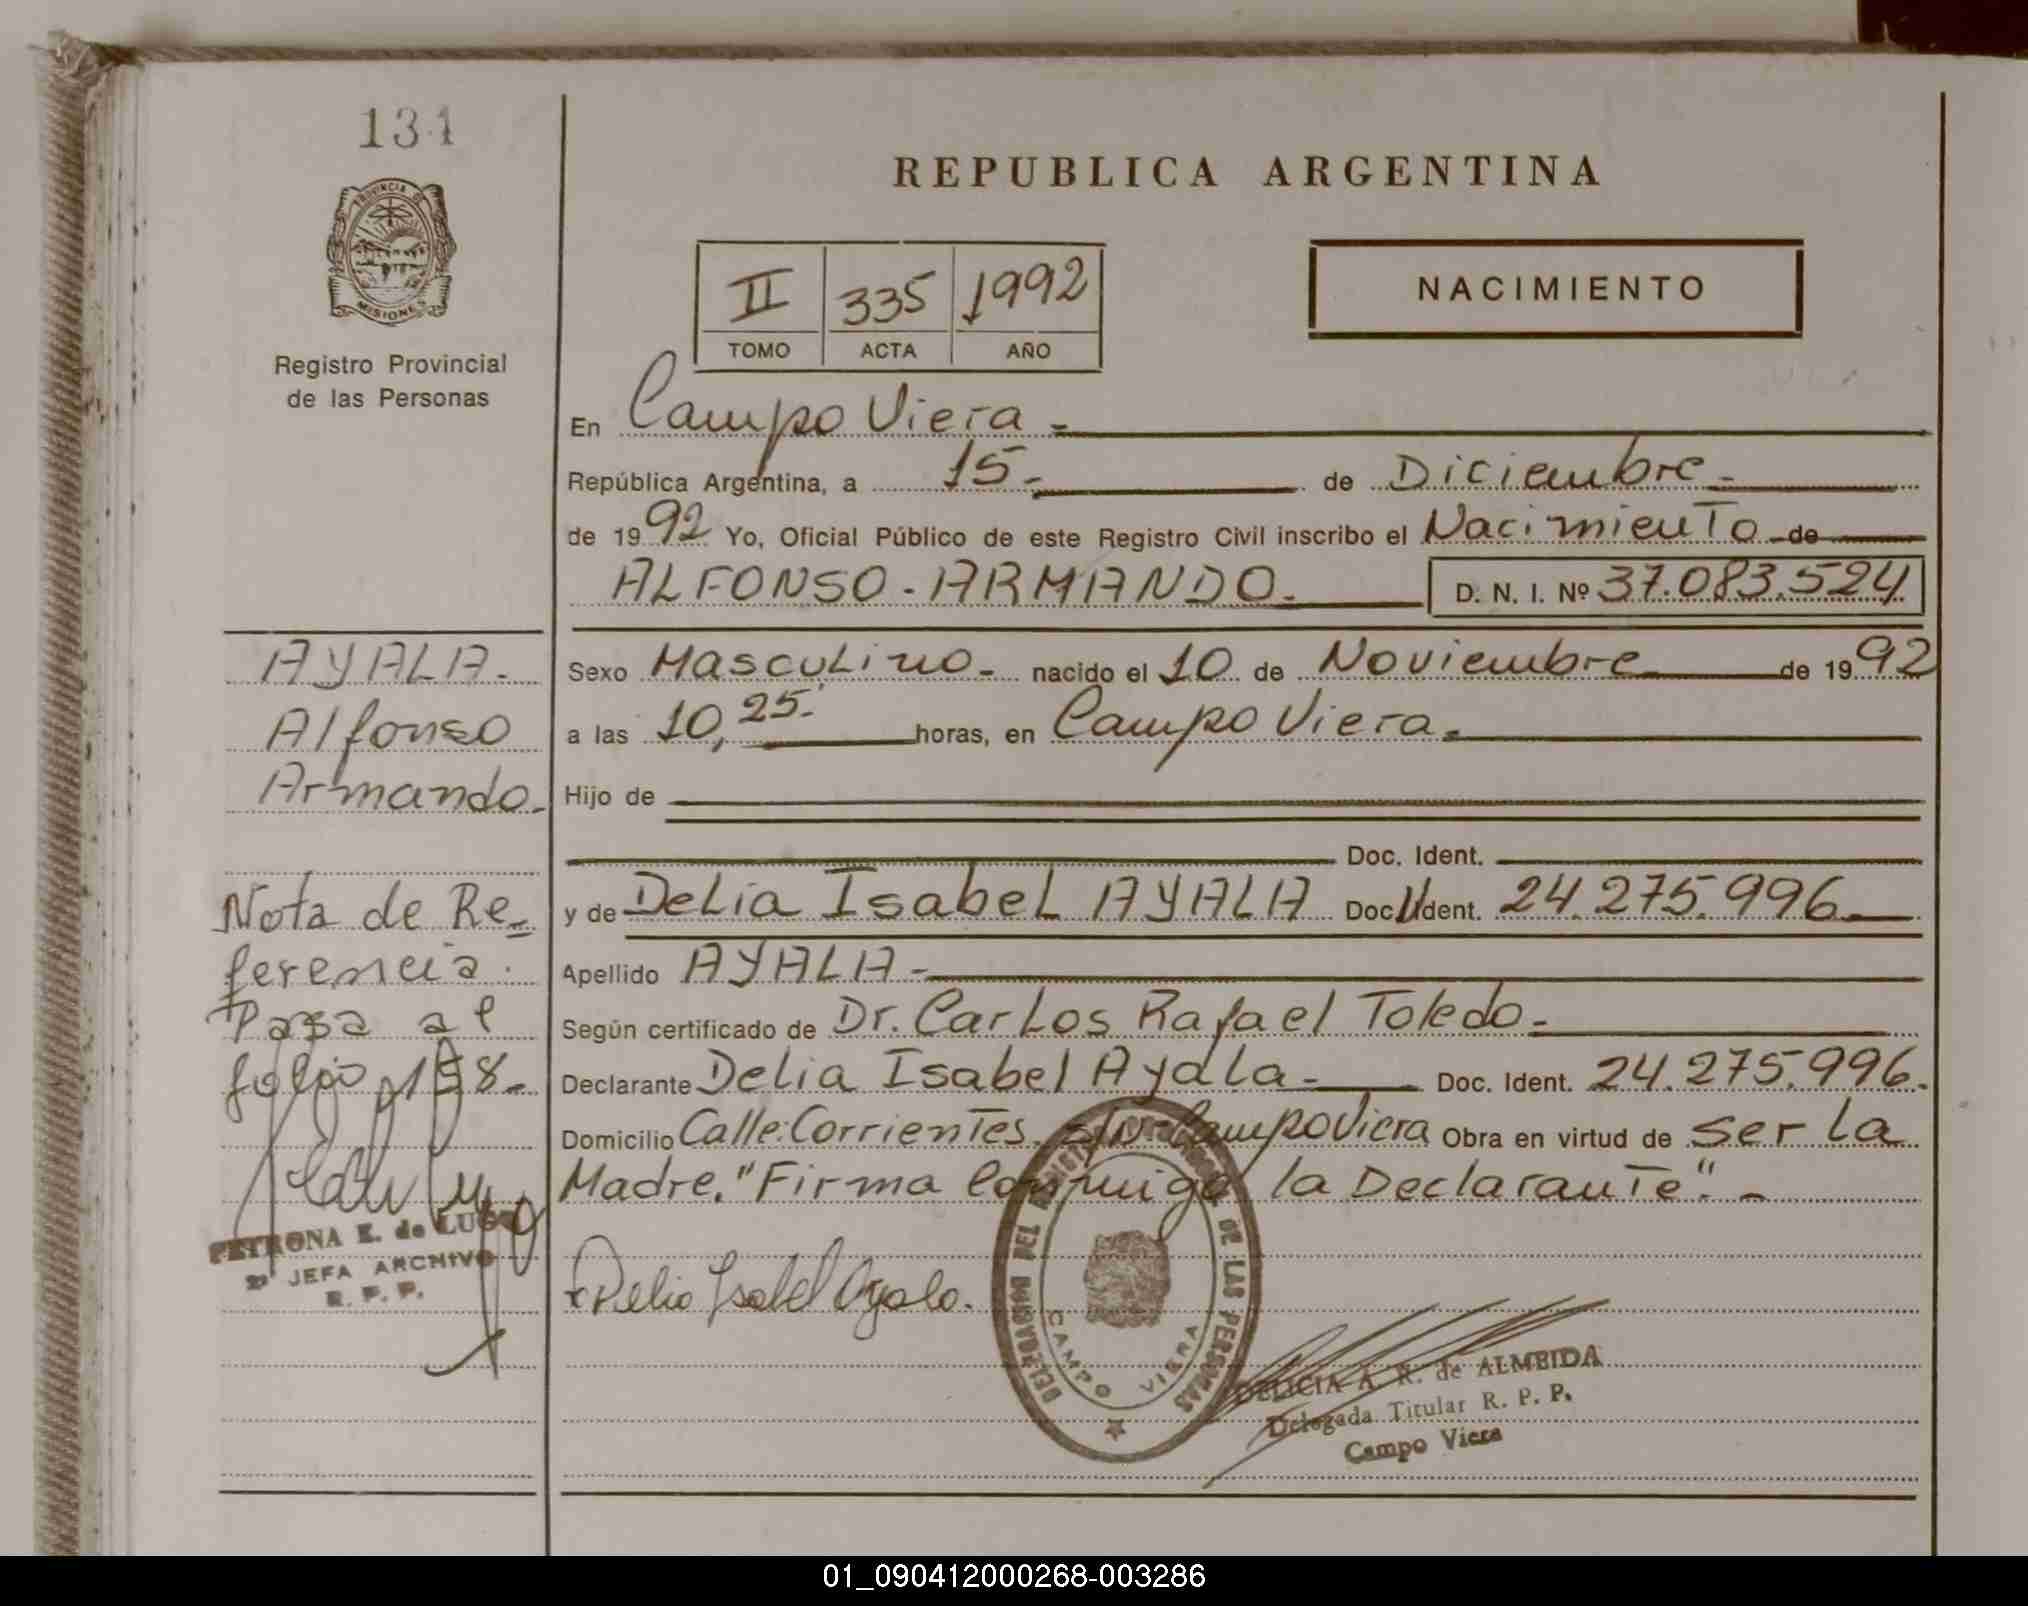 134
PROVINCIA DE
MISIONES
Registro Provincial
de las Personas
REPUBLICA ARGENTINA
II 335 1992
TOMO ACTA AÑO
NACIMIENTO
En Campo Viera.=
República Argentina, a 15.- de Diciembre.-
de 1992 Yo, Oficial Público de este Registro Civil inscribo el Nacimiento de
ALFONSO - ARMANDO.- D. N. I. Nº 37.083.524
Sexo Masculino.- nacido el 10 de Noviembre de 1992
a las 10,25.' horas, en Campo Viera.
Hijo de
Doc. Ident.
y de Delia Isabel AYALA Doc. Ident. 24.275.996
Apellido AYALA.-
Según certificado de Dr. Carlos Rafael Toledo.-
Declarante Delia Isabel Ayala.- Doc. Ident. 24.275.996.
Domicilio Calle: Corrientes. s/Nº- Campo Viera Obra en virtud de ser la
Madre. "Firma Conmigo la Declarante". -
Delia Isabel Ayala.
DELEGACION DEL REGISTRO PROVINCIAL DE LAS PERSONAS
CAMPO VIERA
DELICIA A. R. de ALMEIDA
Delegada Titular R. P. P.
Campo Viera
AYALA.-
Alfonso
Armando.-
Nota de Re=
ferencia.
Pasa al
folio 158-
PETRONA E. de LUGO
2ª JEFA ARCHIVO
R. P. P.
01_090412000268-003286